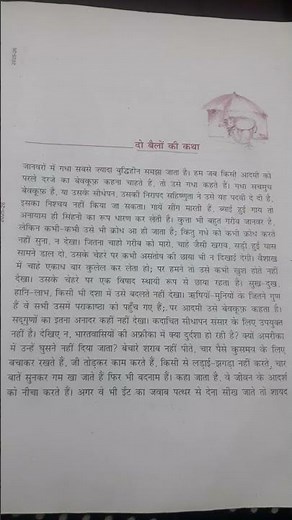 दो बैलों की कथा
जानवरों में गधा सबसे ज्यादा बुद्धिहीन समझा जाता है। हम जब किसी आदमी को
परले दरजे का बेवकूफ़ कहना चाहते हैं, तो उसे गधा कहते हैं। गधा सचमुच
बेवकूफ़ है, या उसके सीधेपन, उसकी निरापद सहिष्णुता ने उसे यह पदवी दे दी है,
इसका निश्चय नहीं किया जा सकता। गायें सींग मारती हैं, ब्याई हुई गाय तो
अनायास ही सिंहनी का रूप धारण कर लेती है। कुत्ता भी बहुत गरीब जानवर है,
लेकिन कभी-कभी उसे भी क्रोध आ ही जाता है; किंतु गधे को कभी क्रोध करते
नहीं सुना, न देखा। जितना चाहो गरीब को मारो, चाहे जैसी खराब, सड़ी हुई घास
सामने डाल दो, उसके चेहरे पर कभी असंतोष की छाया भी न दिखाई देगी। वैशाख
में चाहे एकाध बार कुलेल कर लेता हो; पर हमने तो उसे कभी खुश होते नहीं
देखा। उसके चेहरे पर एक विषाद स्थायी रूप से छाया रहता है। सुख-दुख,
हानि-लाभ, किसी भी दशा में उसे बदलते नहीं देखा। ऋषियों-मुनियों के जितने गुण
हैं वे सभी उसमें पराकाष्ठा को पहुँच गए हैं; पर आदमी उसे बेवकूफ़ कहता है।
सद्गुणों का इतना अनादर कहीं नहीं देखा। कदाचित सीधापन संसार के लिए उपयुक्त
नहीं है। देखिए न, भारतवासियों की अफ्रीका में क्या दुर्दशा हो रही है? क्यों अमरीका
में उन्हें घुसने नहीं दिया जाता? बेचारे शराब नहीं पीते, चार पैसे कुसमय के लिए
बचाकर रखते हैं, जी तोड़कर काम करते हैं, किसी से लड़ाई-झगड़ा नहीं करते, चार
बातें सुनकर गम खा जाते हैं फिर भी बदनाम हैं। कहा जाता है, वे जीवन के आदर्श
को नीचा करते हैं। अगर वे भी ईंट का जवाब पत्थर से देना सीख जाते तो शायद